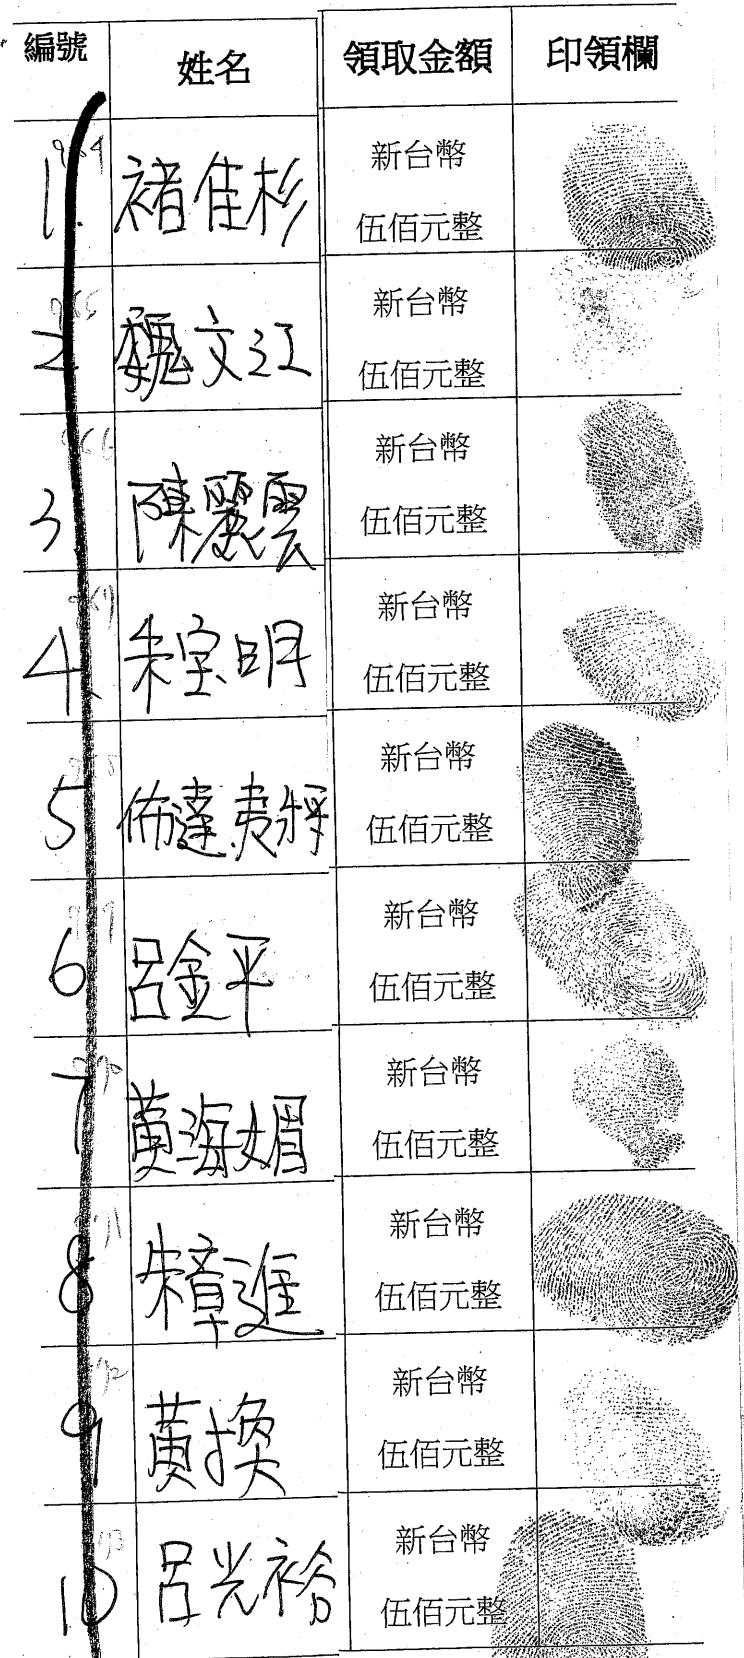 編號 姓名 領取金額 印領欄
964
1. 褚佳杉 新台幣
伍佰元整
965
2 魏文江 新台幣
伍佰元整
966
3 陳麗雲 新台幣
伍佰元整
4. 朱宝明 新台幣
伍佰元整
5 佈達 新台幣
伍佰元整
6 呂金平 新台幣
伍佰元整
7 黃海媚 新台幣
伍佰元整
8 朱章進 新台幣
伍佰元整
9 黃換 新台幣
伍佰元整
10 呂光裕 新台幣
伍佰元整